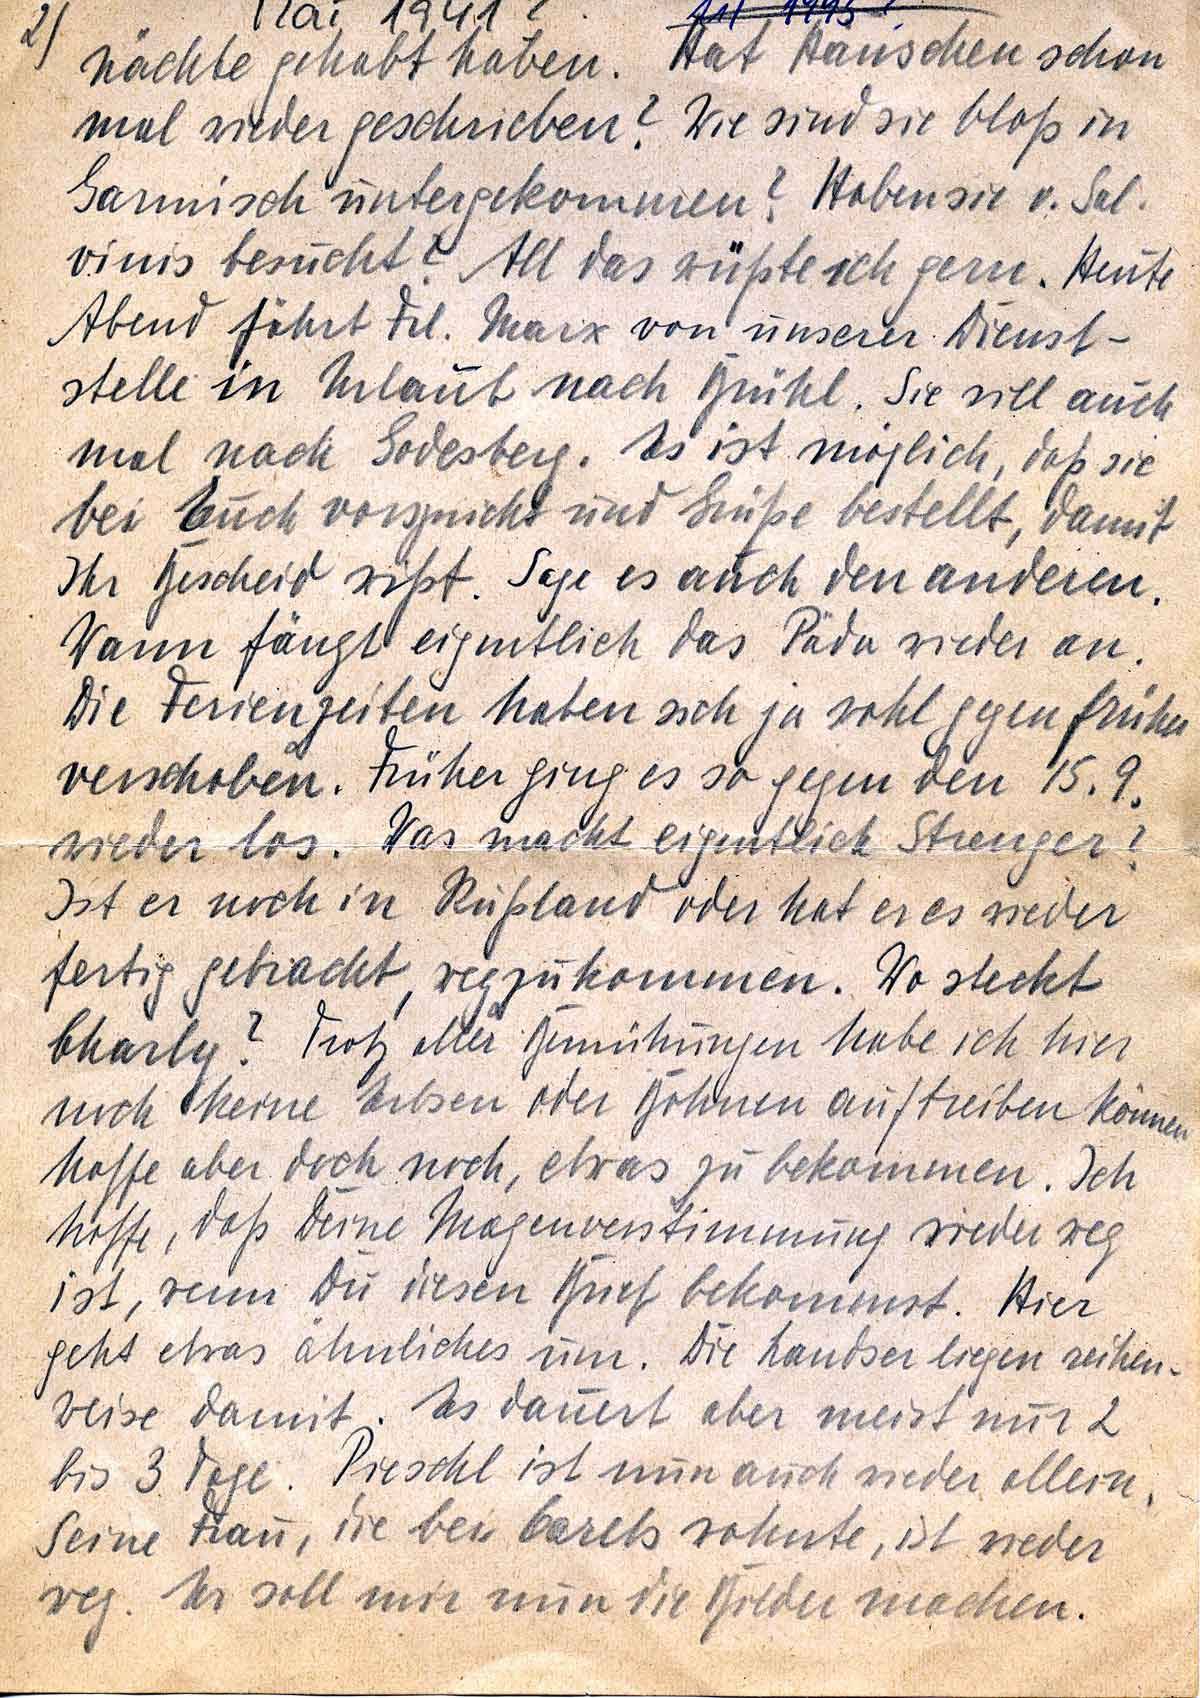 2) Mai 1941?
nächte gehabt haben. Hat Hänschen schon
mal wieder geschrieben? Wie sind sie bloß in
Garmisch untergekommen? Haben sie v. Sal.
vinis besucht? All das wüßte ich gern. Heute
Abend fährt Frl. Marx von unserer Dienst-
stelle in Urlaub nach Brühl. Sie will auch
mal nach Godesberg. Es ist möglich, daß sie
bei Euch vorspricht und Grüße bestellt, damit
Ihr Bescheid wißt. Sage es auch den anderen.
Wann fängt eigentlich das Päda wieder an.
Die Ferienzeiten haben sich ja wohl gegen früher
verschoben. Früher ging es so gegen den 15.9.
wieder los. Was macht eigentlich Strenger?
Ist er noch in Rußland oder hat er es wieder
fertig gebracht, wegzukommen. Wo steckt
Charly? Trotz aller Bemühungen habe ich hier
noch keine Erbsen oder Bohnen auftreiben können
hoffe aber doch noch, etwas zu bekommen. Ich
hoffe, daß Deine Magenverstimmung wieder weg
ist, wenn Du diesen Brief bekommst. Hier
geht etwas ähnliches um. Die Landser liegen reihen-
weise damit. Es dauert aber meist nur 2
bis 3 Tage. Pieschl ist nun auch wieder allein.
Seine Frau, die bei Carels wohnte, ist wieder
weg. Er soll mir nun die Bilder machen.